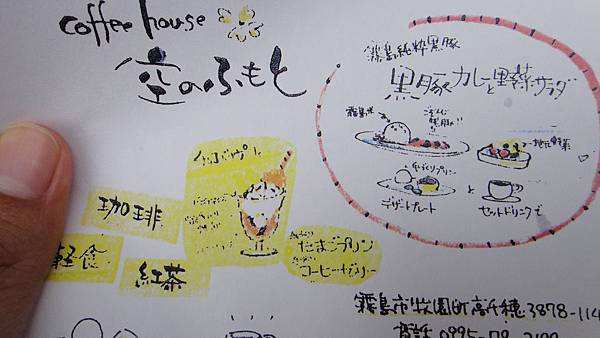 coffee house
空のふもと
霧島純粋黒豚
黒豚カレーと野菜サラダ
霧島米
ごろんと
黒豚!!
地元野菜
手づくりプリン
デザートプレート
と
セットドリンクで
パフェ
珈琲
軽食
紅茶
たまごプリン
コーヒーゼリー
霧島市牧園町高千穂3878-114
電話 0995-78-